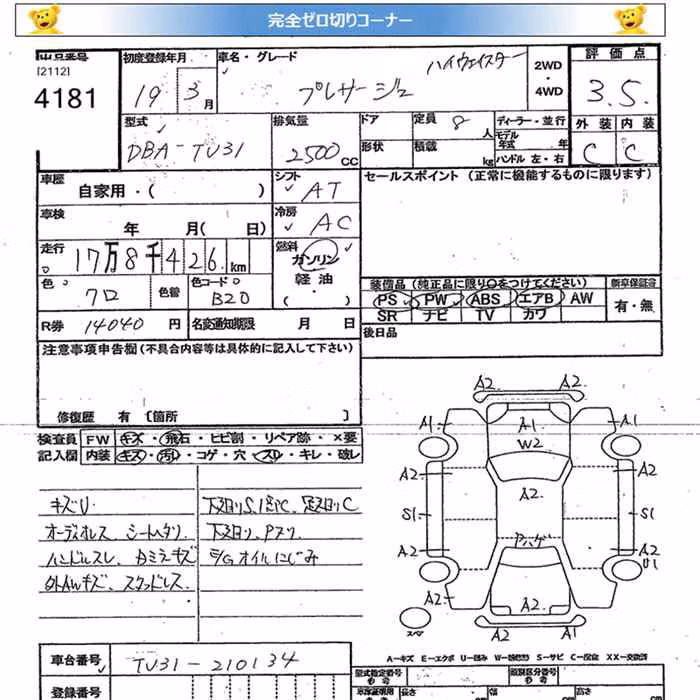 完全ゼロ切りコーナー
出品番号 初度登録年月 車名・グレード ハイウェイスター 2WD・4WD 評価点
[2112]
4181 19 3月 プレサージュ 3.5
型式 排気量 ドア 定員 8人 ディーラー・並行 外装 内装
DBA-TU31 2500cc 形状 積載 kg モデル年式 年 C C
ハンドル 左・右
車歴 シフト セールスポイント (正常に機能するものに限ります)
自家用・( ) AT
車検 冷房
年 月( 日) AC
走行 燃料
17万8千426km ガソリン・軽油
色 色替 色コードNo 装備品 (純正品に限り○をつけてください) 新車保証書
クロ B20 PS PW ABS エアB AW 有・無
SR ナビ TV カワ
R券 14040円 名変通知期限 月 日 後日品
注意事項申告欄(不具合内容等は具体的に記入して下さい)
修復歴 有 〔箇所 〕
検査員 FW キズ・飛石・ヒビ割・リペア跡・×要
記入欄 内装 キズ・汚れ・コゲ・穴・スレ・キレ・破レ
キズU
オーディオレス シートヘタリ
ハンドルスレ
外AWキズ、スタッドレス
下廻りS
E/Gオイルにじみ
A2 A2
A1 A1 A1
W2
A2 A2 A2
S1 S1
アハゲ
A2 A2
U1
A2 A2 A2
スペア A2 A1
A-キズ E-エクボ U-凹み W-補修跡 S-サビ C-腐食 XX-交換済
車台番号 TU31-210134
登録番号
型式指定番号 類別区分番号
参考 長さ 幅 高さ